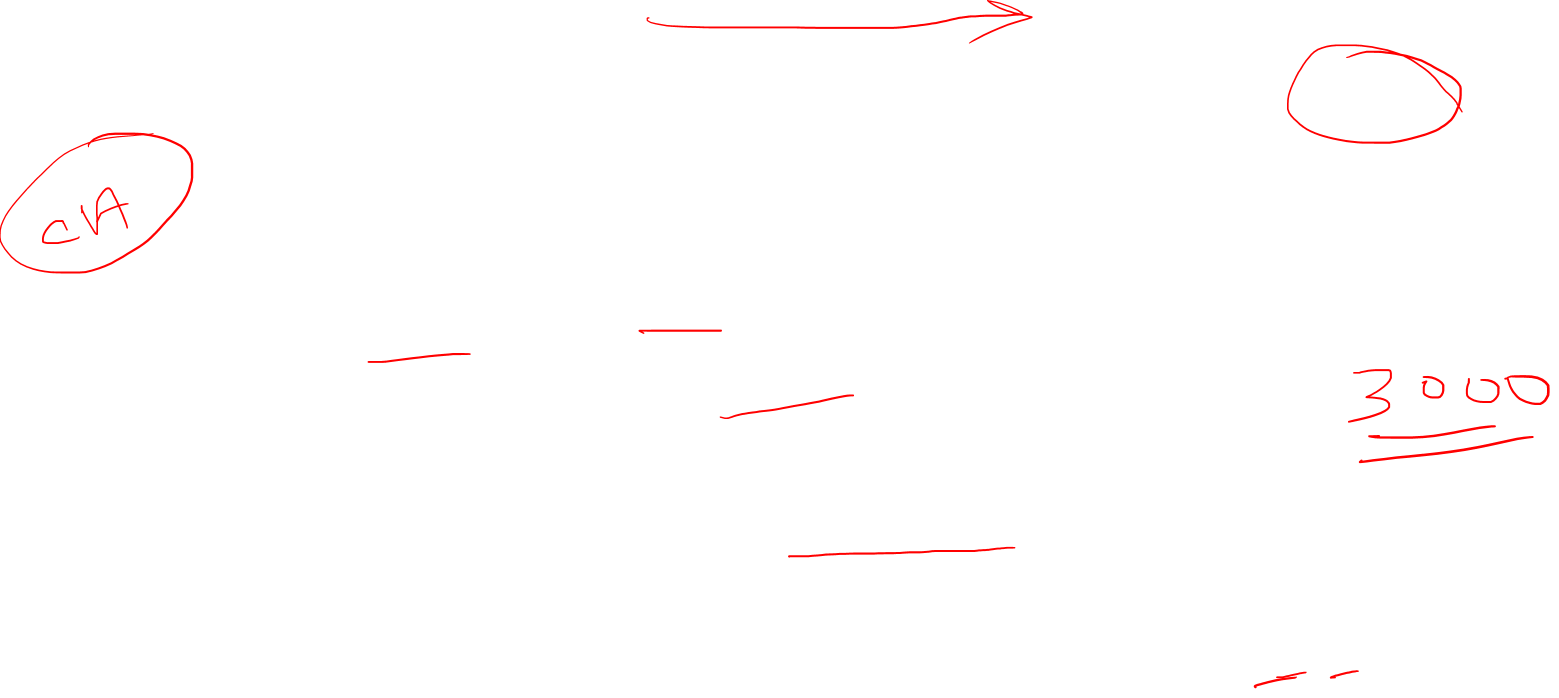 CA
3000